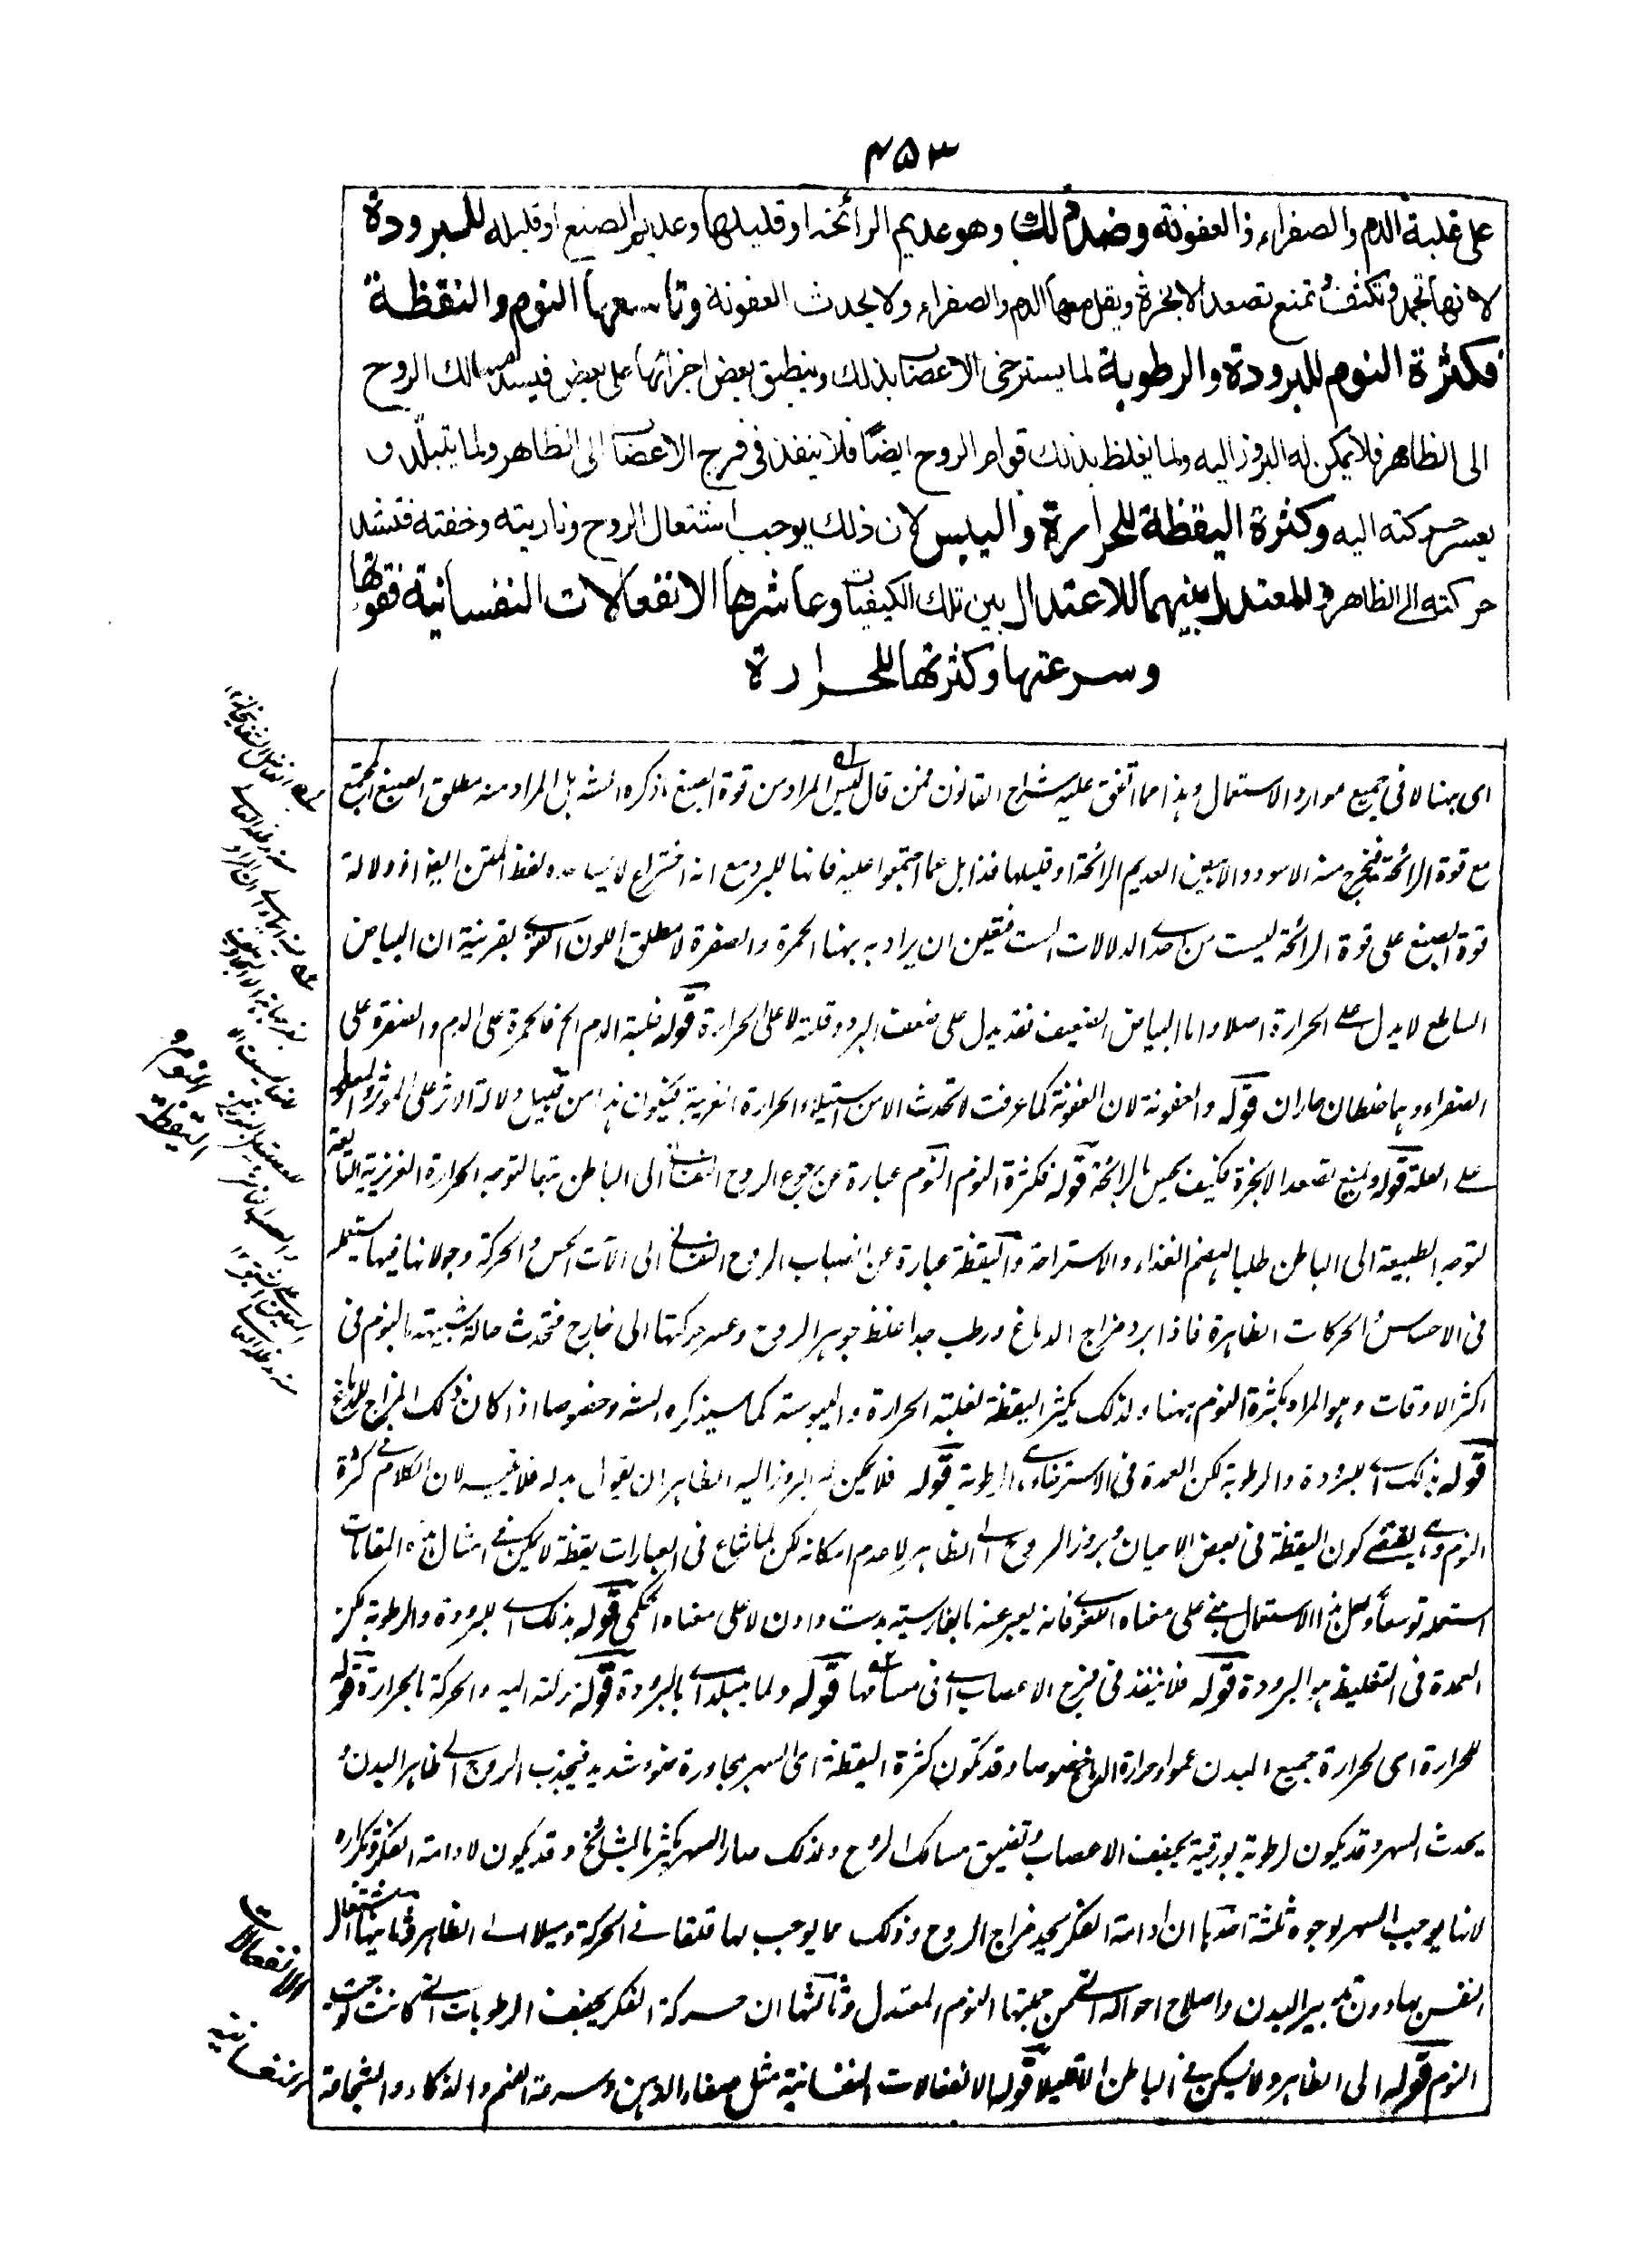 ۴۵۳
على غلبة الدم والصفراء ذا العفونة وضد ذلك وهو عديم الرائحة او قليلها وعديم الصبغ او قليله للبرودة
لانها تجمد وتكثف فتمنع تصعد الابخرة ويقل معها الدم والصفراء ولا يحدث العفونة وتاسعها النوم واليقظة
فكثرة النوم للبرودة والرطوبة لما يسترخى الاعصاب بذلك وينطبق بعض اجزائها على بعض فيسد مسالك الروح
الى الظاهر فلا يمكن له البروز اليه ولما يغلظ بذلك قوام الروح ايضًا فلا ينفذ فى فرج الاعصاب الى الظاهر ولما يتبلد و
يعسر حركته اليه وكثرة اليقظة للحرارة واليبس لان ذلك يوجب اشتعال الروح وناريته وخفته فتشتد
حركته الى الظاهر والمعتدل بينهما للاعتدال بين تلك الكيفيات وعاشرها الانفعالات النفسانية فقوتها
وسرعتها وكثرتها للحرارة
اى ههنا لا فى جميع موارد الاستعمال وهذا مما اتفق عليه شراح القانون فمن قال ليس المراد من قوة الصبغ ما ذكره الشه بل المراد منه مطلق الصبغ المجتمع
مع قوة الرائحة فيخرج منه الاسود والابيض العديم الرائحة او قليلها فذاهل عما اجتمعوا عليه فانها للبرد مع انه اختراع لا يساعده لفظ المتن ايضا اذ دلالة
قوة الصبغ على قوة الرائحة ليست من احدى الدلالات الست فتعين ان يراد به ههنا الحمرة والصفرة لا مطلق اللون القوى بقرينة ان البياض
الساطع لا يدل على الحرارة اصلا واما البياض الضعيف فقد يدل على ضعف البرد وقلته لا على الحرارة قوله غلبة الدم الخ فالحمرة على الدم والصفرة على
الصفراء وهما خلطان حاران قوله والعفونة لان العفونة كما عرفت لا تحدث الا من استيلاء الحرارة الغريبة فيكون هذا من قبيل دلالة الاثر على المؤثر والمعلول
على العلة قوله ويمنع تصعد الابخرة فكيف يحس بالرائحة قوله فكثرة النوم النوم عبارة عن رجوع الروح النفسانى الى الباطن تبعا لتوجه الحرارة الغريزية التابعة
لتوجه الطبيعة الى الباطن طلبا لهضم الغذاء والاستراحة واليقظة عبارة عن انصباب الروح النفسانى الى آلات الحس والحركة وجولانها فيها يستعمله
فى الاحساس والحركات الظاهرة فاذا برد مزاج الدماغ ورطب جدا غلظ جوهر الروح وعسر حركتها الى خارج فتحدث حالة شبيهة بالنوم فى
اكثر الاوقات وهو المراد بكثرة النوم ههنا ولذلك يكثر اليقظة لغلبة الحرارة واليبوسة كما سيذكره الشه وخصوصا اذا كان ذلك المزاج للدماغ
قوله بذلك اى البرودة والرطوبة لكن العمدة فى الاسترخاء الرطوبة قوله فلا يمكن له البروز اليه الظاهر ان يقول بدله فلا لان الكلام فى كثرة
النوم وهى يقتضى كون اليقظة فى بعض الاحيان وبروز الروح الى الظاهر لا عدم امكانه لكن لما شاع فى العبارات يقظة لا يمكن فى امثال هذه المقامات
استعمله توسعا ولعل هذا الاستعمال مبنى على معناه اللغوى فانه يعبر عنه بالفارسية بدست دادن لا على معناه الحكمى قوله بذلك اى البرودة والرطوبة لكن
العمدة فى التغليظ هو البرودة قوله فلا ينفذ فى فرج الاعصاب اى فى مسامها قوله ولما يتبلد اى بالبرودة قوله حركته اليه والحركة بالحرارة قوله
للحرارة اى لحرارة جميع البدن عموما وحرارة الدماغ خصوصا وقد تكون كثرة اليقظة اى السهر بمجاورة ضوء شديد فيجذب الروح الى ظاهر البدن و
يحدث السهر وقد يكون لرطوبة بورقية يجفف الاعصاب وتضيق مسالك الروح ولذلك صار السهر يكثر بالمشائخ وقد يكون لادامة الفكر وتكراره
لانها يوجب السهر لوجوه ثلثة احدها ان ادامة الفكر يحيد مزاج الروح وذلك مما يوجب لها قلقا فى الحركة وميلا الى الظاهر وثانيها اشتغال
النفس بها دون تدبير البدن واصلاح احواله التى من جملتها النوم المعتدل وثالثها ان حركة الفكر يجفف الرطوبات التى كانت توجب
النوم قوله الى الظاهر ولا يسكن فى الباطن الا قليلا قوله الانفعالات النفسانية مثل صفاء الذهن وسرعة الفهم والذكاء والشجاعة
النوم و
اليقظة
الانفعالات
النفسانية